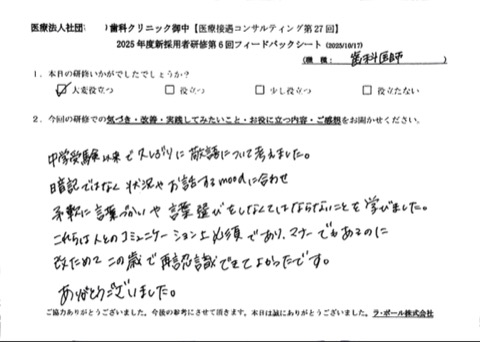 医療法人社団(　　)歯科クリニック御中【医療接遇コンサルティング第27回】
2025年度新採用者研修第6回フィードバックシート (2025/10/17)
(職種： 歯科医師)
1．本日の研修いかがでしたでしょうか？
☑大変役立つ □役立つ □少し役立つ □役立たない
2．今回の研修での気づき・改善・実践してみたいこと・お役に立つ内容・ご感想をお聞かせください。
中学受験以来で久しぶりに敬語について考えました。
暗記ではなく状況やお話するmoodに合わせ
柔軟に言葉づかいや言葉選びをしなくてはならないことを学びました。
これらは人とのコミュニケーション上必須であり、マナーでもあるのに
改ためてこの歳で再認識できてよかったです。
ありがとうございました。
ご協力ありがとうございました。今後の参考にさせて頂きます。本日は誠にありがとうございました。ラ・ポール株式会社